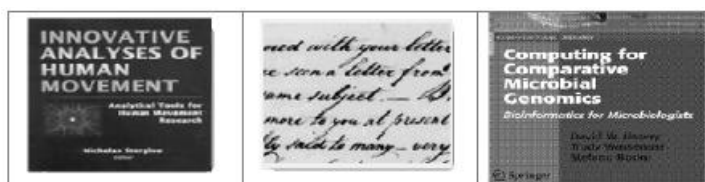 INNOVATIVE
ANALYSES OF
HUMAN
MOVEMENT
Analytical Tools for
Human Movement
Research
Nicholas Stergiou
editor
with your letter
seen a letter from
same subject. —
more to you at present
said to many — very
Computing for
Comparative
Microbial
Genomics
Bioinformatics for Microbiologists
David W. Ussery
Trudy Wassenaar
Stefano Borini
Springer